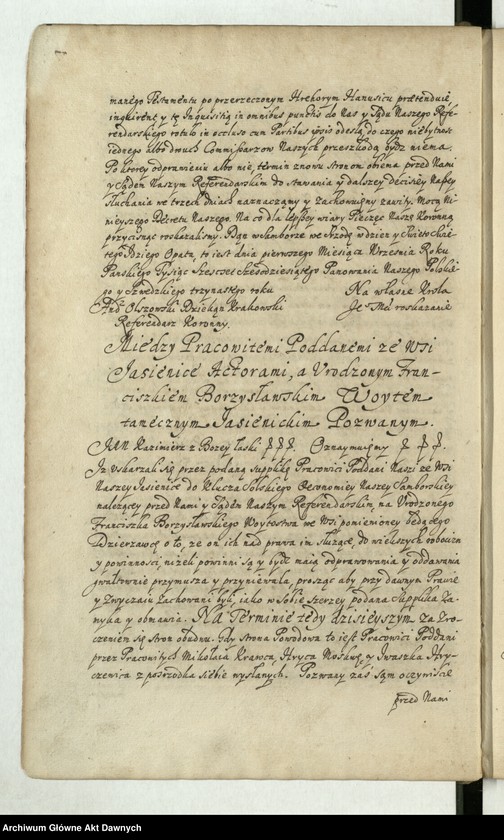 manego Testamentu po przerzeczonym Hrehorym Hanusicu prætenduie
inquirenę y tę Inquisitią in omnibus punctis do Nas y Sądu Naszego Refe-
rendarskiego rotulo in occluso cum Partibus ipsis odeslą, do czego niebytnosc
iednego albo dwuch Commissarzow Naszych przeszkodą bydz niema.
Po ktorey odprawieniu albo nie, termin znowu stronom obiema przed Nami
y Sądem Naszym Referendarskim do stawania y dalszey decisiey Naszey
słuchania we trzech dniach naznaczamy y Zachowuiemy zawity. Mocą Ni-
nieyszego Dekretu Naszego. Na co dla lepszey wiary Pieczęć Naszę Koronną
przycisnąć roskazalismy. Dan w Samborze we Srzodę w dzien y Swieto Swię-
tego Idziego Opata, to iest dnia pierwszego Miesiąca Wrzesnia Roku
Panskiego Tysiąc Szescset Szescdziesiątego Panowania Naszego Polskie-
go y Szwedzkiego trzynastego roku Na własne Krola
And. Olszowski Dziekan Krakowski Je Mci roskazanie
Referendarz Koronny.
Między Pracowitemi Poddanemi ze Wsi
Jasienice Actorami, a Urodzonym Fran-
ciszkiem Borzysławskim Woytem
tanecznym Jasienickim Pozwanym.
JAN Kazimierz z Bozey łaski Oznaymuiemy
Iz uskarzali się przez podaną supplikę Pracowici Poddani Nasi ze Wsi
Naszey Jasienice do Klucza Solskiego Oeconomiey Naszey Samborskiey
nalezącey przed Nami y Sądem Naszym Referendarskim, na Urodzonego
Franciszka Borzysławskiego Woytostwa we Wsi pomienioney będącego
Dzierzawcę o to, ze on ich nad prawa im słuzące, do większych robocizn
y powinnosci, nizeli powinni są y bydź maią odprawowania y oddawania
gwałtownie przymusza y przyniewala, prosząc aby przy dawnym Prawie
y Zwyczaiu Zachowani byli, iako w Sobie szerzey podana Supplika Za-
myka y obmawia. Na Terminie tedy dzisieyszym za Zro-
czeniem się Stron obudwu. Gdy strona Powodowa to iest Pracowici Poddani
przez Pracowitych Mikołaia Krawca, Hryca Noskwę y Iwaszka Hry-
czewica z posrzodka siebie wysłanych. Pozwany zaś sam oczywiscie
przed Nami
Archiwum Główne Akt Dawnych